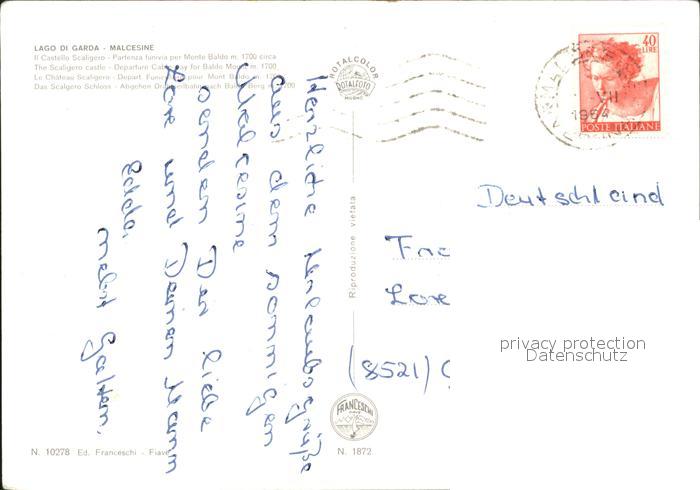 LAGO DI GARDA - MALCESINE
Il Castello Scaligero - Partenza funivia per Monte Baldo m. 1700 circa
The Scaligero castle - Departure Cableway for Baldo Mount m. 1700
Le Château Scaligero - Depart Funiculaire pour Mont Baldo m. 1700
Das Scaligero Schloss - Abgehen Drahtseilbahn nach Baldo Berg m. 1700
ROTALCOLOR
ROTALFOTO
MILANO
40
LIRE
1964
POSTE ITALIANE
Herzliche Urlaubsgrüße
aus dem sonnigen
Malcesine
senden Dir liebe
Lore und Deinen Mann
Edda
nebst Gatten.
Riproduzione vietata
Deutschland
Frau
Lore
(8521)
privacy protection
Datenschutz
FRANCESCHI
N. 10278 Ed. Franceschi - Fiave
N. 1872